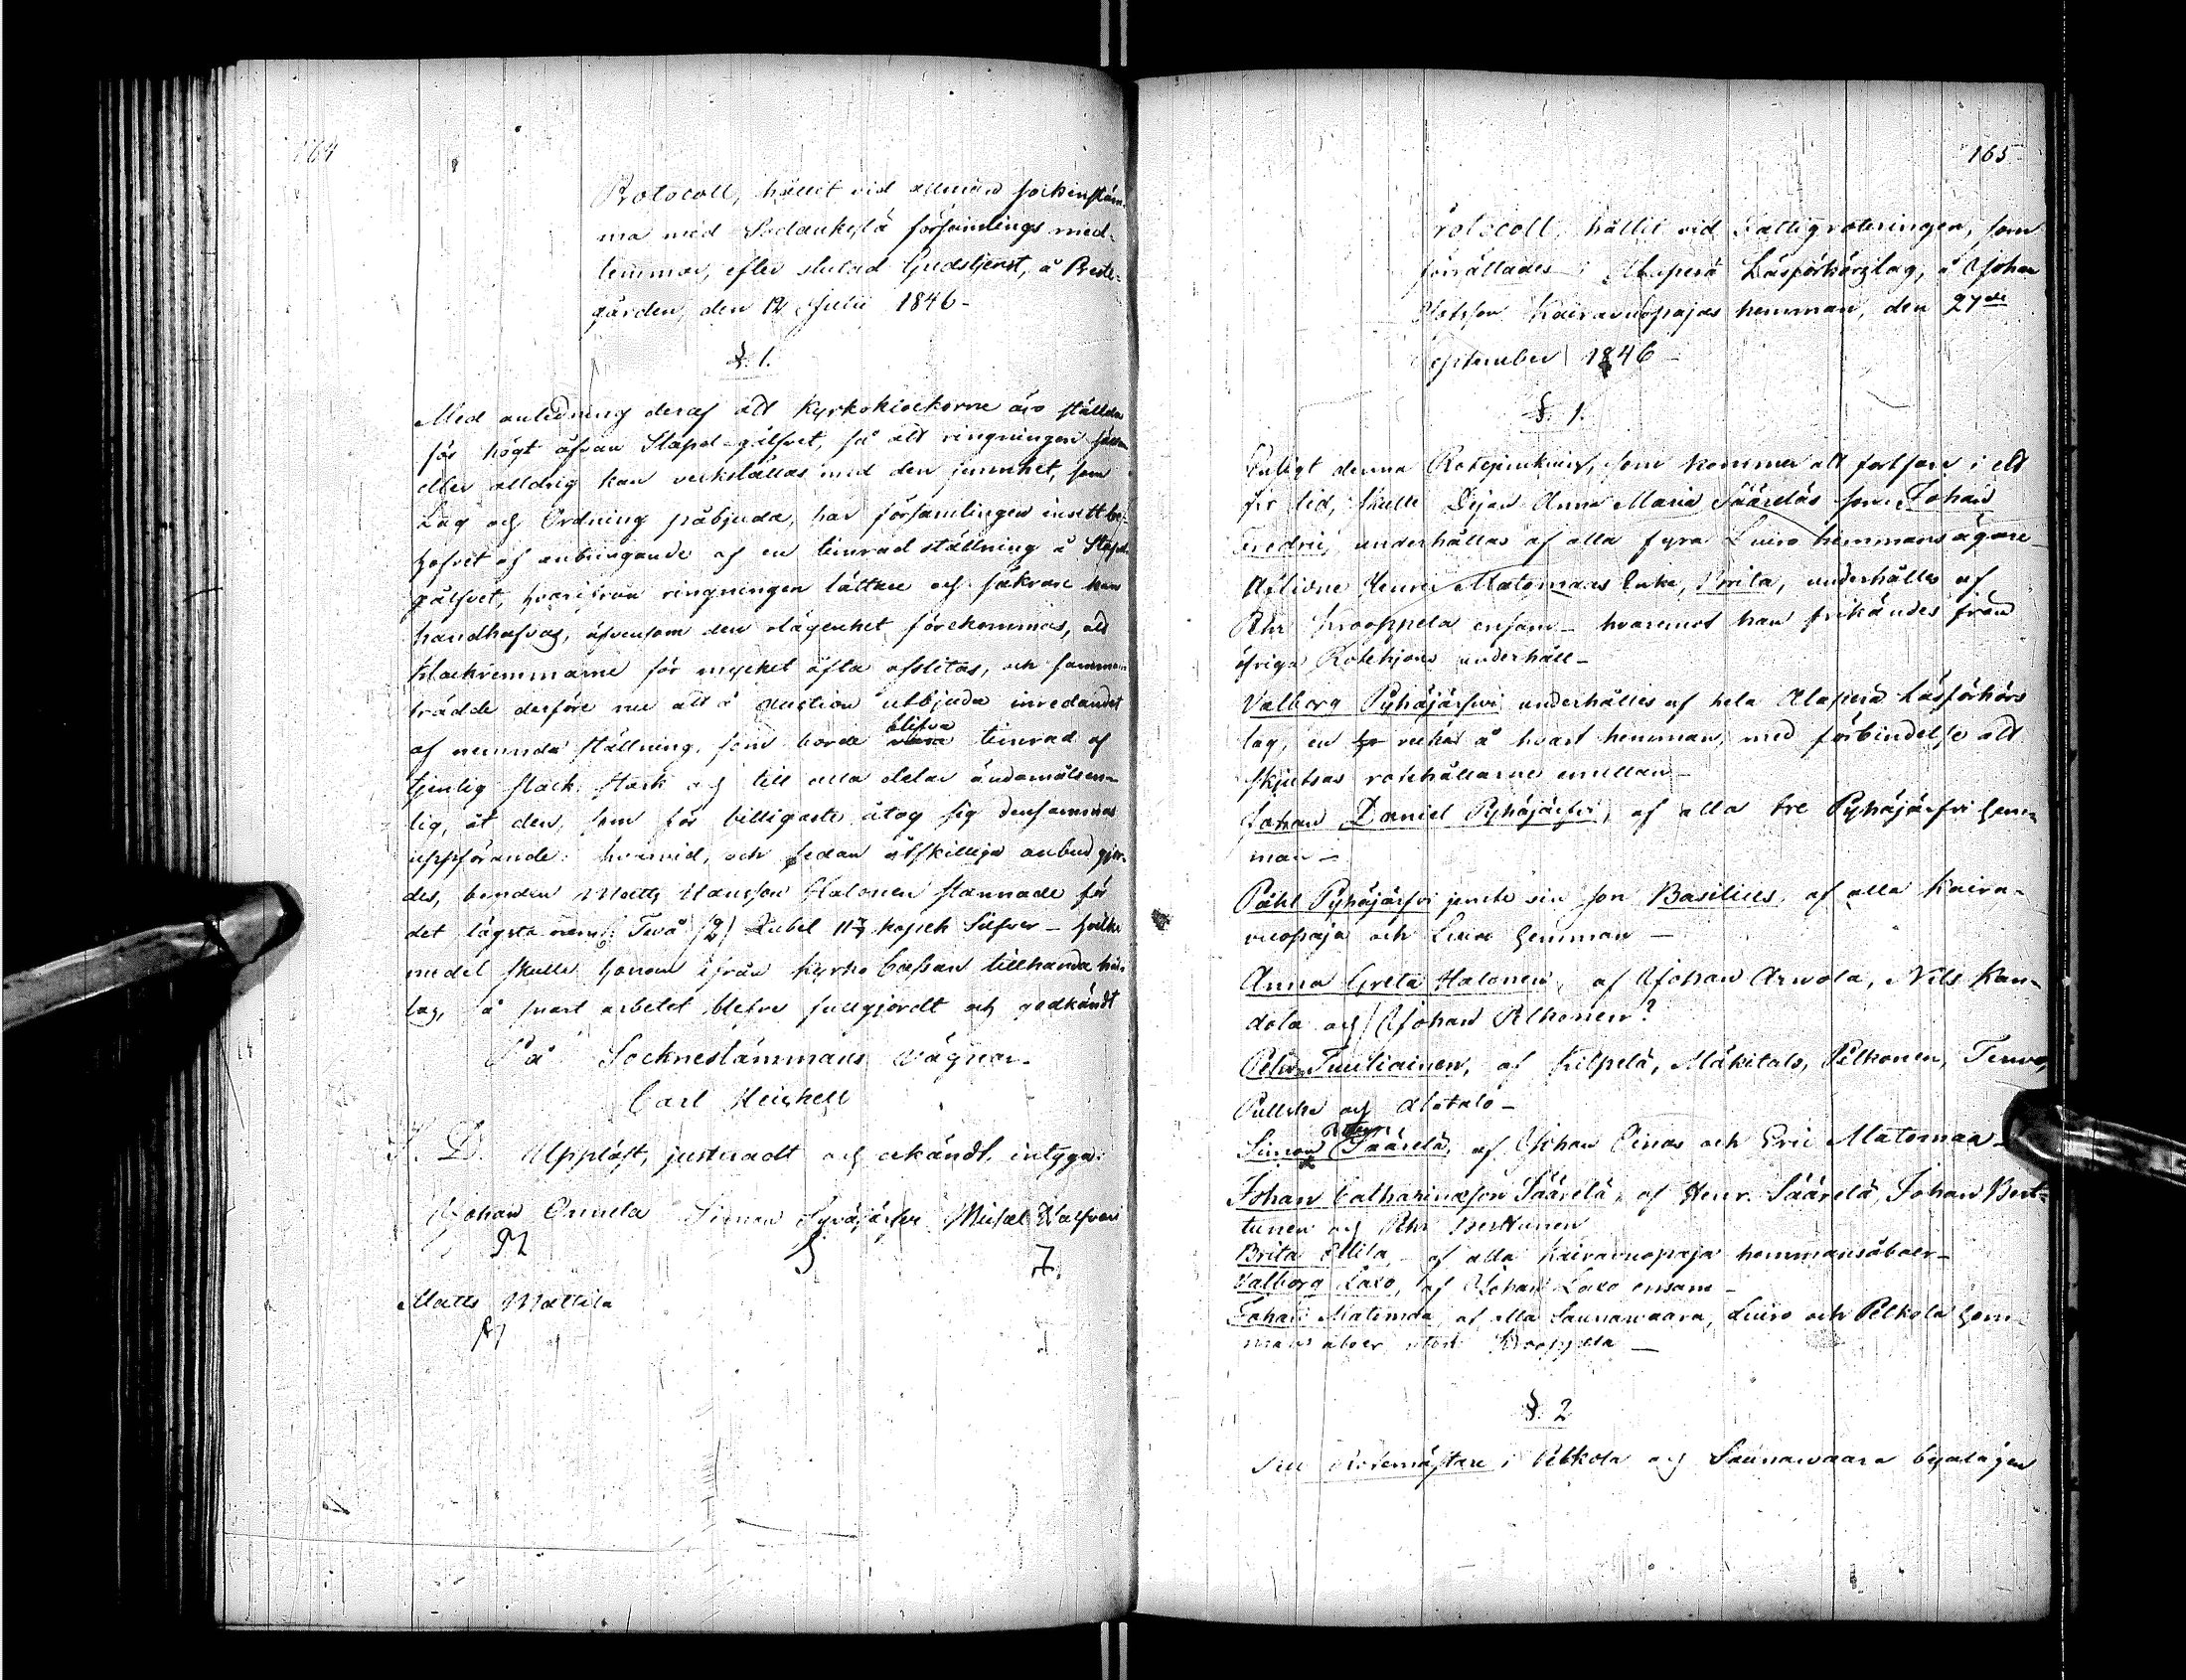 164
Protocoll, hållit vid allmän sockenstäm-
ma med Sodankylä församlings med-
lemmar, efter slutad Gudstjenst, å Preste-
gården, den 12 Julii 1846-
§. 1.
Med anledning deraf att Kyrkoklockorne äro ställda
för högt åfvan Stapel-gålfvet, så att ringningen sällan
eller alldrig kan verkställas med den jemnhet, som
Lag och Ordning påbjuda, har församlingen insett be-
hofvet af anbringande af en timrad ställning å Stapel-
gålfvet, hvarifrån ringningen lättare och säkrare kan
handhafvas, äfvensom den olägenhet förekommas, att
klockremmarne för mycket ofta afslitas, och samman-
trädde desföre nu att å auction utbjuda inredandet
af nemnda ställning, som borde blifva timrad af
tjenlig stock, stark och till alla delar ändamålsen-
lig, åt den, som för billigaste åtog sig densammas
uppförande: hvarvid, och sedan åtskilliga anbud gjor-
des, bonden Matts Hansson Halonen stannade för
det lägsta neml. Två /2/ Rubel kopek Silfver - hvilka
medel skulle honom ifrån Kyrko Cassan tillhanda hål-
las, så snart arbetet blefve fullgjordt och godkändt
På Socknestämmans vägnar.
Carl Heickell
S. D. Uppläst, justeradt och erkändt, intyga:
Johan Simon Michael
Matts Mattila
165
Protocoll, hållit vid Fattigroteringen, som
förrättades i Alaperä Läsförhörslag, å Johan
Kairavuopajas hemman, den 27de
September 1846-
§. 1.
Enligt denna som kommer att fortfara i ett
års tid, skulle Pigan Anna Maria Sääreläs son Johan
Fredric, underhållas af alla fyra Luiro hemmansägare-
Aflidne Henric Matomaas Enka, Brita, underhålles af
Pehr Krooppela ensam - hvaremot han frikändes från
öfriga Rotehjons underhåll-
Valborg Pyhäjärfvi underhålles af hela Alaperä Läsförhörs
lag, en vecka å hvart hemman, med förbindelse att
skjutsas rotehållarne emellan-
Johan Daniel Pyhäjärfvi, af alla tre Pyhäjärfvi hem-
man-
Påhl Pyhäjärfvi jemte sin son Basilius, af alla Kaira-
vuopaja och Luiro hemman-
Anna Greta Halonen, af Johan Arwola, Nils Kan-
dola och Johan
Pehr Tuuliainen, af Kilpelä, Mäkitalo, Pelkonen, Terwo,
och Alatalo-
Simon Säärelä, af Johan och Eric Matomaa-
Johan Catharinæson Säärelä, af Henr. Säärelä, Johan Bert-
tunen och Pehr Berttunen
Brita Ollila, af alla Kairavuopaja hemmansåboer-
Valborg Laxo, af Johan Laxo ensam-
Johan Matomaa, af alla Saunawaara, Luiro och Pelkola hem-
mans åboer utom Krooppela-
§. 2
Till Rotemästare i Pelkola och Saunawaara byalagen